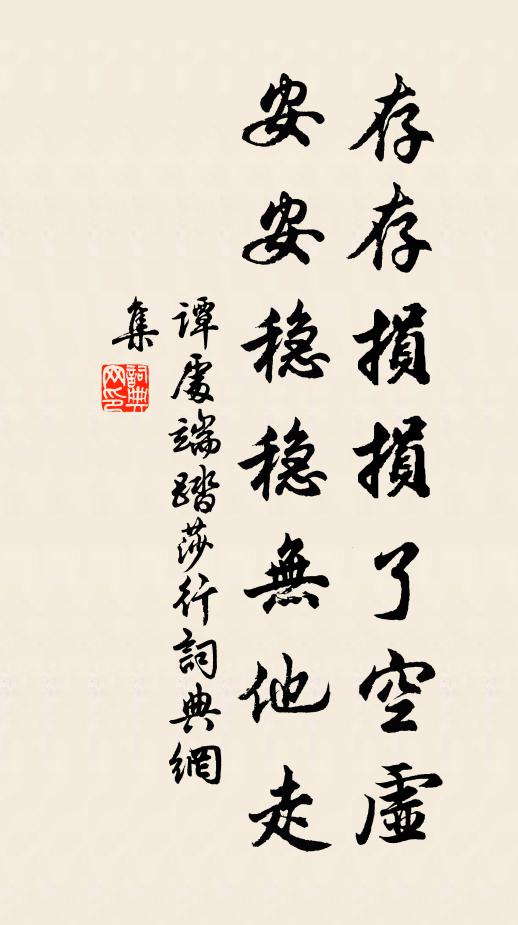 存存損損了空虛
安安穩穩無他走
譚處端踏莎行詞典網
集
詞典網印